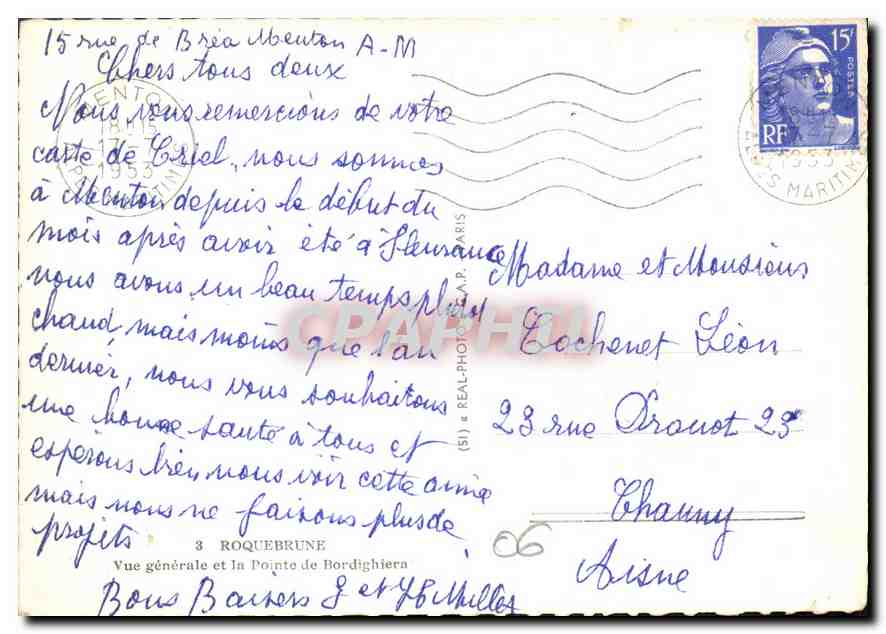 15 rue de Bréa Menton A-M
Chers tous deux
Nous vous remercions de votre
carte de Criel, nous sommes
à Menton depuis le début du
mois après avoir été à Fleurance
nous avons un beau temps plutot
chaud, mais moins que l'an
dernier, nous vous souhaitons
une bonne santé à tous et
espérons bien nous voir cette année
mais nous ne faisons plus de
projets
3 ROQUEBRUNE
Vue générale et la Pointe de Bordighiera
Bons Baisers
MENTON
18H15
17-
1953
ALPES MARITIMES
15F
POSTES
RF
1953
ALPES MARITIMES
(SI) « REAL-PHOTO » C.A.P. PARIS
Madame et Monsieur
Cochenet Léon
23 rue Drouot 23
Chauny
Aisne
06
CPAPHIL